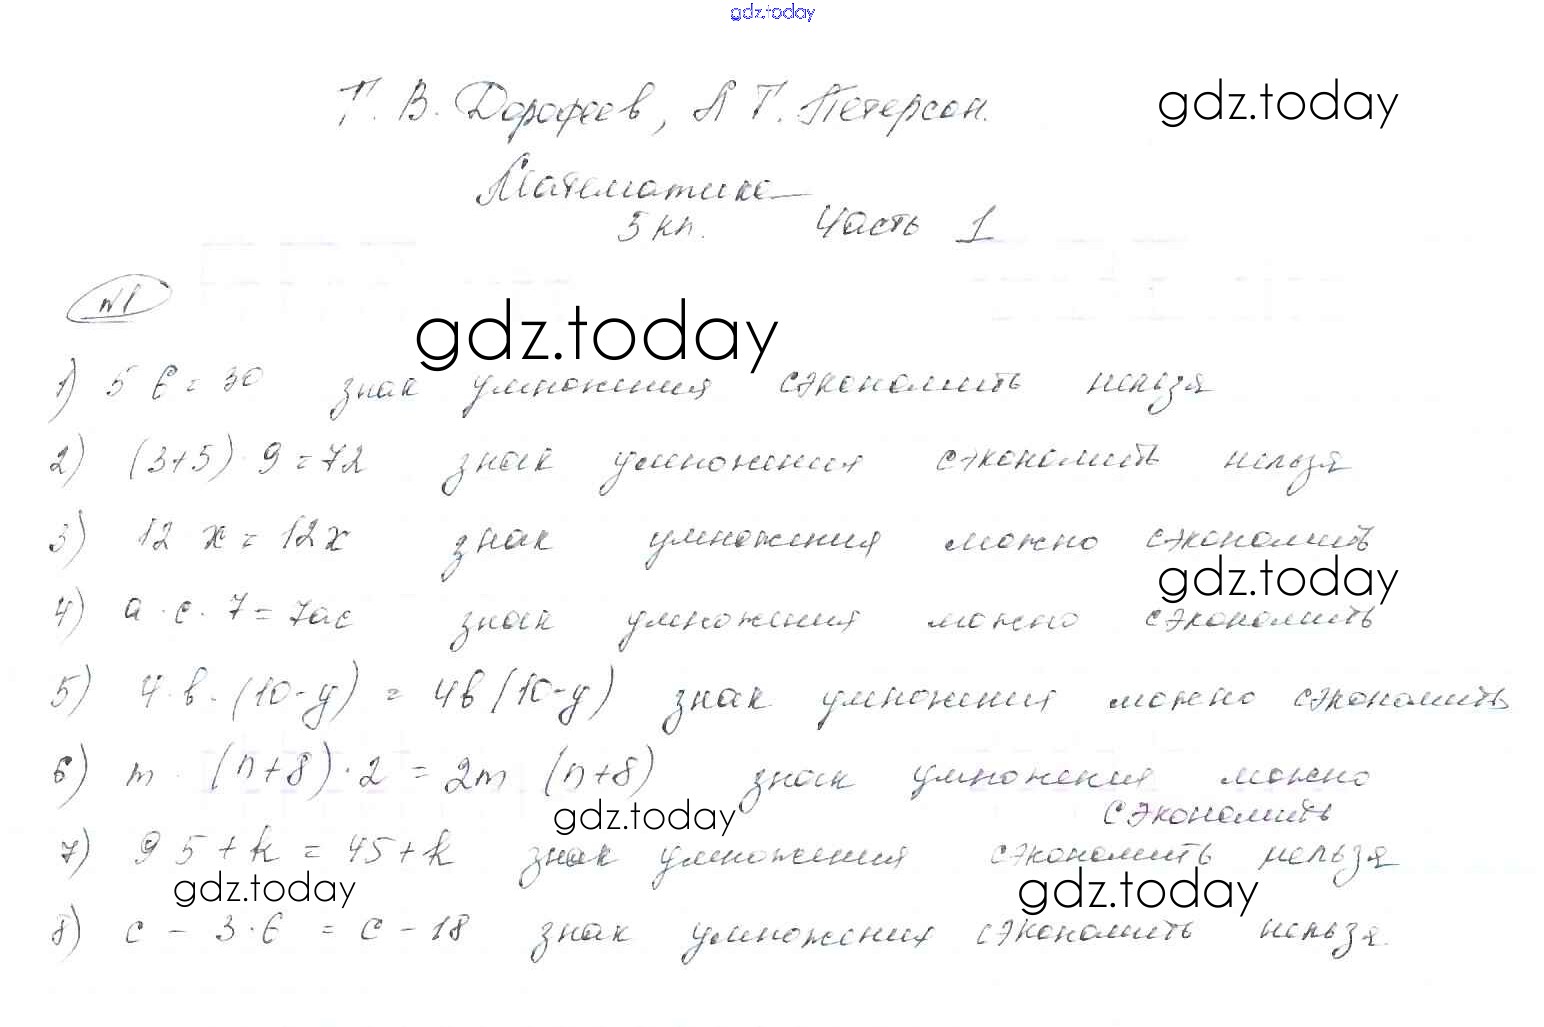 gdz.today
Г. В. Дорофеев, Л Г. Петерсон.
gdz.today
Математика
5 кл. Часть 1
№1
gdz.today
1) 5 6 = 30 знак умножения сэкономить нельзя
2) (3+5) · 9 = 72 знак умножения сэкономить нельзя
3) 12 x = 12x знак умножения можно сэкономить
gdz.today
4) a · c · 7 = 7ac знак умножения можно сэкономить
5) 4 · b · (10-y) = 4b (10-y) знак умножения можно сэкономить
6) m · (n+8) · 2 = 2m (n+8) знак умножения можно
сэкономить
gdz.today
7) 9 5 + k = 45 + k знак умножения сэкономить нельзя
gdz.today gdz.today
8) c - 3 · 6 = c - 18 знак умножения сэкономить нельзя.